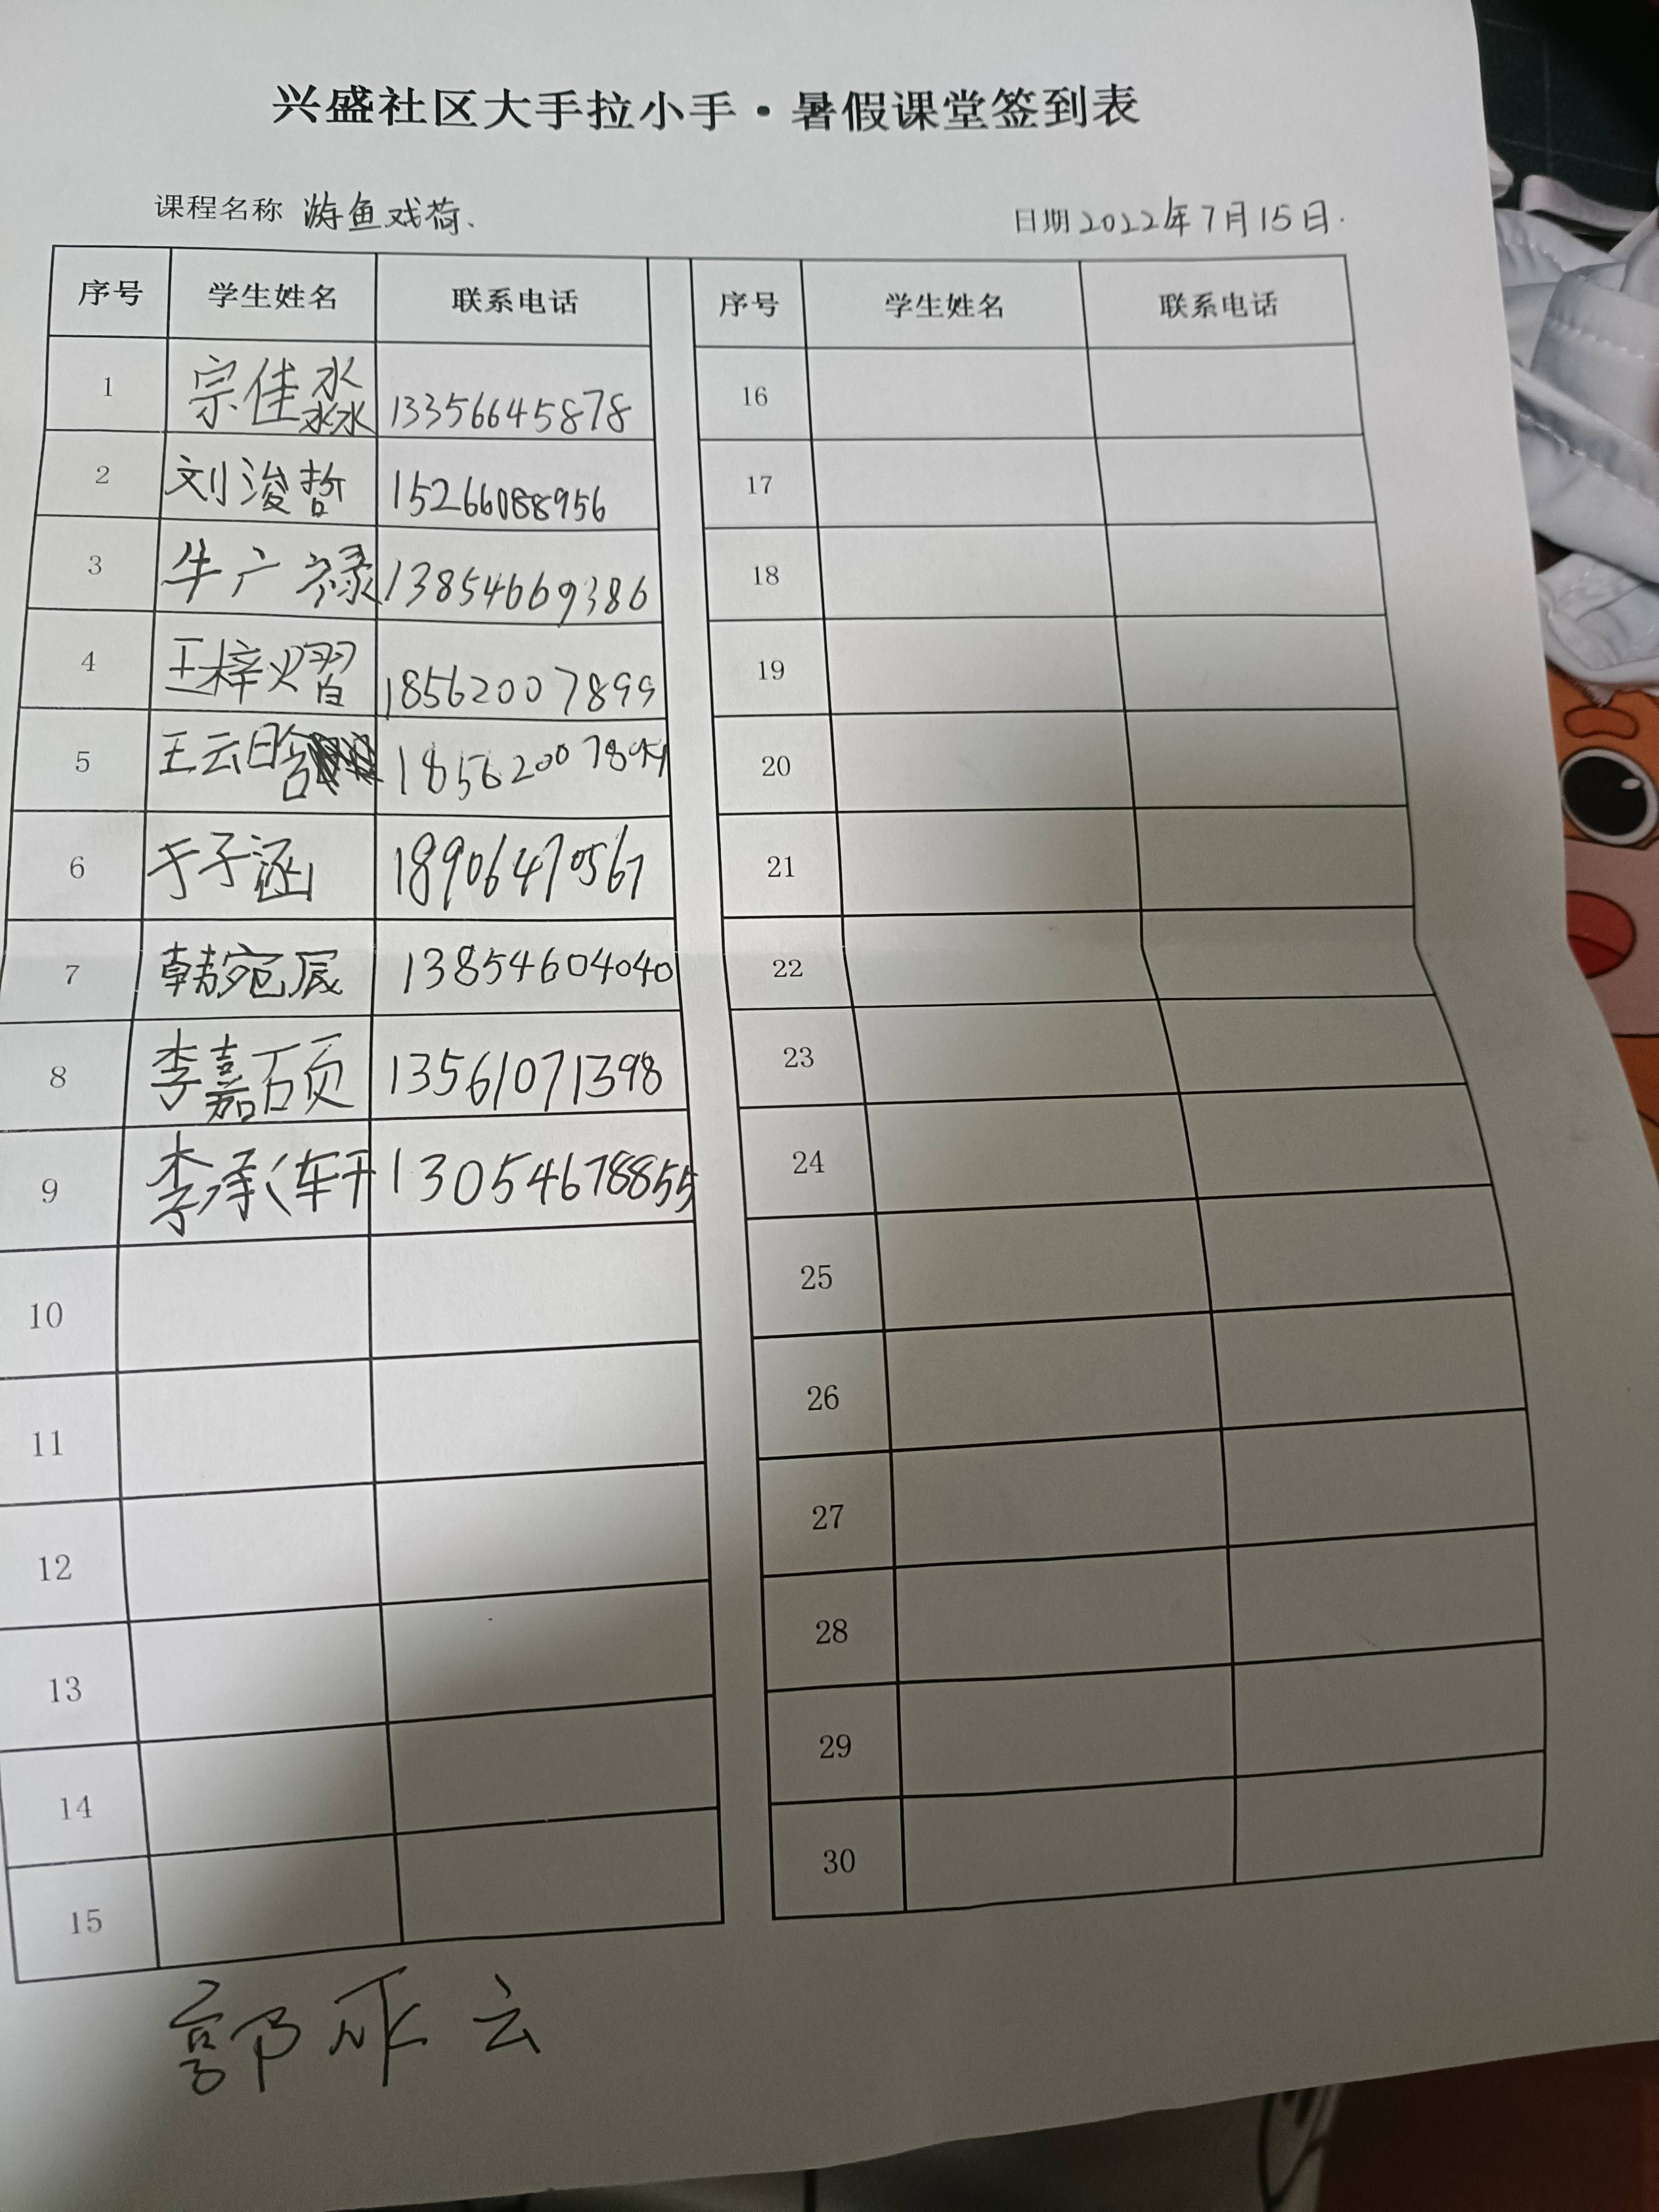 兴盛社区大手拉小手·暑假课堂签到表
课程名称 游鱼戏荷. 日期 2022年7月15日.
序号 学生姓名 联系电话 序号 学生姓名 联系电话
1 宗佳淼 13356645878 16
2 刘浚哲 15266088956 17
3 牛广禄 13854669386 18
4 王梓熠 18562007899 19
5 王云晗 18562007899 20
6 于子涵 18906470567 21
7 韩宛辰 13854604040 22
8 李嘉硕 13561071398 23
9 李承轩 13054678855 24
10 25
11 26
12 27
13 28
14 29
15 30
郭 云